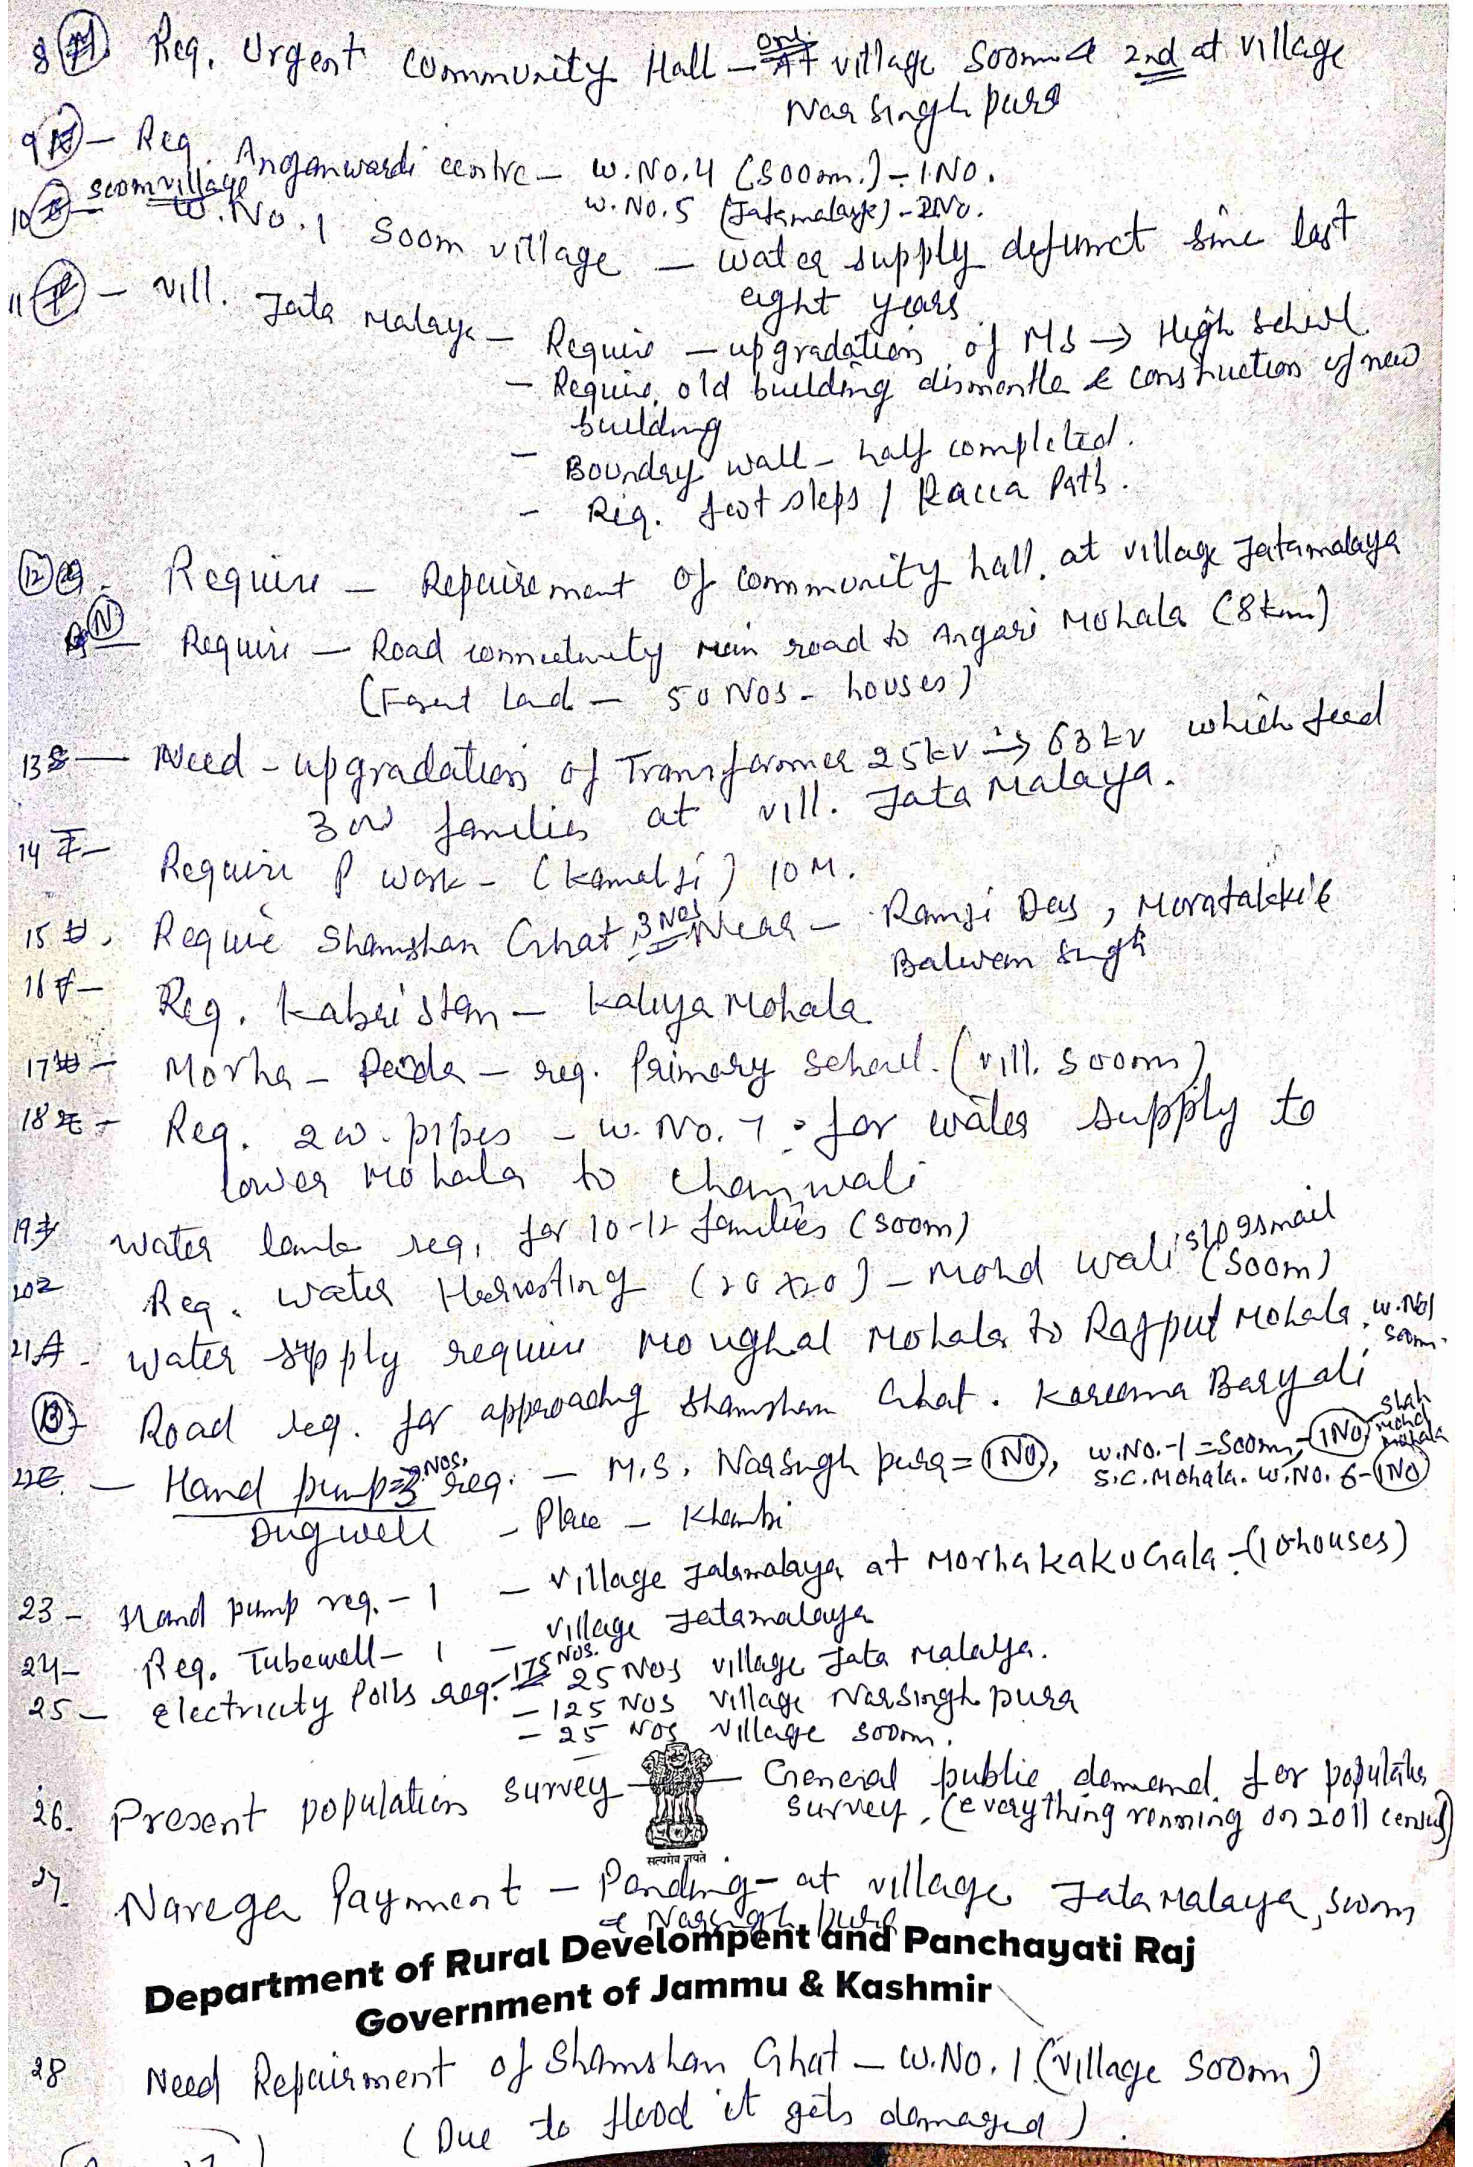 8 Req. Urgent Community Hall - one village Soom & 2nd at village
Narsingh pura
9 - Req. Anganwardi centre - W.No.4 (Soom.) - 1No.
W.No.5 (Jatamalaya) - 2No.
10 Soom village
W.No.1 Soom village - water supply defunct sinc last
eight years
11 - vill. Jata Malaya - Require - upgradation of MS → High School
- Require old building dismantle & construction of new
building
- Bounday wall - half completed.
- Req. foot steps / Pacca Path.
12 Require - Repairement of community hall. at village Jatamalaya
N Require - Road connectivity main road to Angari Mohala (8km)
(Forest Land - 50 Nos - houses)
13 - Need - upgradation of Transformer 25kv → 63kv which feed
300 families at vill. Jata Malaya.
14 - Require P work - (Kamal ji) 10M.
15. Require Shamshan Ghat 3 Nos Near - Ramji Das,
Balwan Singh
16 - Req. Kabristan - Kaliya Mohala
17 - Morha - - req. Primary School. (vill. Soom)
18 - Req. 2w. pipes - W.No. 7 for water supply to
lower Mohala to
19 Water tank req. for 10-12 families (Soom)
20 Req. Water Harvesting (20x20) - Mohd Wali s/o Ismail
(Soom)
21 - Water supply require Moughal Mohala to Rajput Mohala. W.No1
Soom.
B Road req. for approachg Shamshan Ghat.
22 - Hand pump = 3 Nos. req. - M.S. Narsingh pura = 1No, W.No.-1 = Soom, - 1No Shah Mohd Mohala
S.C. Mohala. W.No. 6 - 1No
Dugwell - Place - Khambi
23 - Hand pump req. - 1 - Village Jatamalaya at Morha kaku Gala - (10 houses)
24 - Req. Tubewell - 1 - Village Jatamalaya
25 - Electricity Polls req. - 175 Nos. 25 Nos village Jata Malaya.
- 125 Nos village Narsingh pura
- 25 Nos village Soom.
26. Present population survey - General public demand for population
survey. (everything running on 2011 census)
सत्यमेव जयते
27 Narega Payment - Panding - at village Jata Malaya, Soom
& Narsingh pura
Department of Rural Develompent and Panchayati Raj
Government of Jammu & Kashmir
28 Need Repairment of Shamshan Ghat - W.No.1 (village Soom)
(Due to flood it gets damaged).